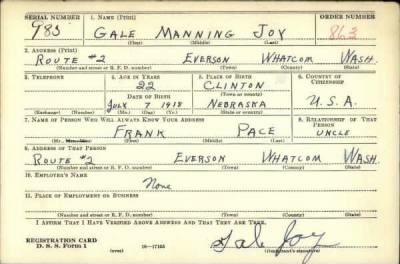 SERIAL NUMBER 1. NAME (Print) ORDER NUMBER
983 GALE MANNING JOY 863
(First) (Middle) (Last)
2. ADDRESS (Print)
ROUTE #2 EVERSON WHATCOM WASH.
(Number and street or R. F. D. number) (Town) (County) (State)
3. TELEPHONE 4. AGE IN YEARS 5. PLACE OF BIRTH 6. COUNTRY OF CITIZENSHIP
22 CLINTON
DATE OF BIRTH (Town or county)
JULY 7 1918 NEBRASKA U.S.A.
(Mo.) (Day) (Yr.) (State or country)
7. NAME OF PERSON WHO WILL ALWAYS KNOW YOUR ADDRESS 8. RELATIONSHIP OF THAT PERSON
FRANK PACE UNCLE
(First) (Middle) (Last)
9. ADDRESS OF THAT PERSON
ROUTE #2 EVERSON WHATCOM WASH.
(Number and street or R. F. D. number) (Town) (County) (State)
10. EMPLOYER'S NAME
None
11. PLACE OF EMPLOYMENT OR BUSINESS
(Number and street or R. F. D. number) (Town) (County) (State)
I AFFIRM THAT I HAVE VERIFIED ABOVE ANSWERS AND THAT THEY ARE TRUE.
REGISTRATION CARD
D. S. S. Form 1 (over) 16—17105 Gale Joy
(Registrant's signature)